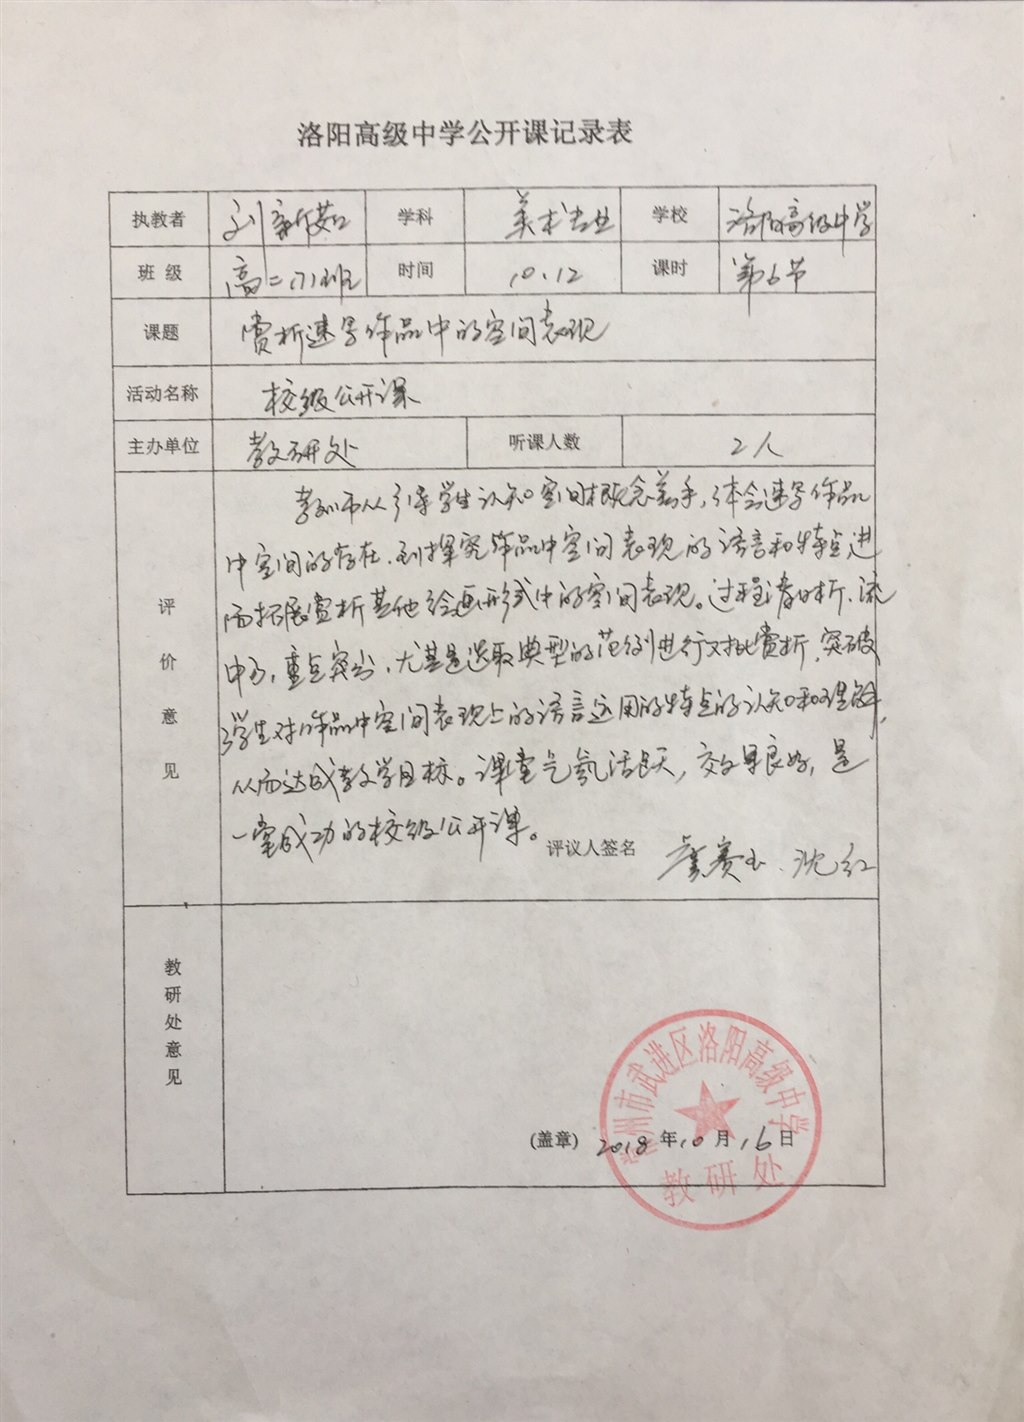 洛阳高级中学公开课记录表
执教者 刘新茹 学科 美术专业 学校 洛阳高级中学
班 级 高二(7)班 时间 10.12 课时 第6节
课题 赏析速写作品中的空间表现
活动名称 校级公开课
主办单位 教研处 听课人数 2人
评价意见
教师从引导学生认知空间概念着手,体会速写作品
中空间的存在,到探究作品中空间表现的语言和特点,进
而拓展赏析其他绘画形式中的空间表现。过程清晰、流
畅,重点突出,尤其是选取典型的范例进行对比赏析,突破
学生对作品中空间表现上的语言运用的特点的认知和理解,
从而达成教学目标。课堂气氛活跃,效果良好,是
一堂成功的校级公开课。
评议人签名 赛玉、沈红
教研处意见
常州市武进区洛阳高级中学
(盖章) 2018年10月16日
教研处